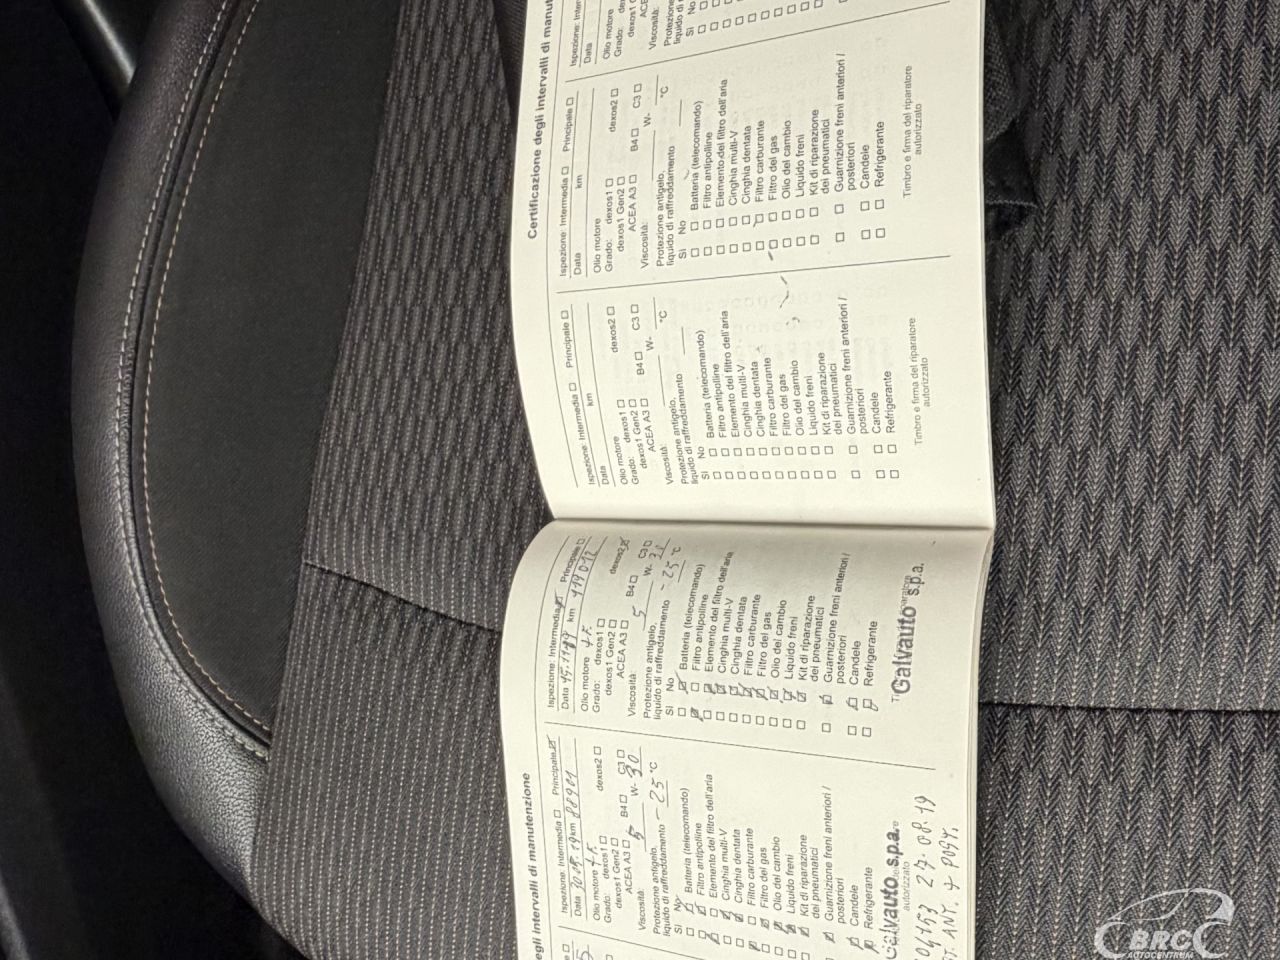 egli intervalli di manutenzione
Ispezione: Intermedia Principale
Data 30.05.19 km 88981
Olio motore 4.F.
Grado: dexos1 dexos2
dexos1 Gen2
ACEA A3 B4 C3
Viscosità: 5 W- 30
Protezione antigelo,
liquido di raffreddamento -25 °C
Si No
Batteria (telecomando)
Filtro antipolline
Elemento del filtro dell'aria
Cinghia multi-V
Cinghia dentata
Filtro carburante
Filtro del gas
Olio del cambio
Liquido freni
Kit di riparazione
dei pneumatici
Guarnizione freni anteriori /
posteriori
Candele
Refrigerante
Galvauto s.p.a.
autorizzato
27.08.19
Ispezione: Intermedia Principale
Data 15.11.19 km 119012
Olio motore 4.F.
Grado: dexos1 dexos2
dexos1 Gen2
ACEA A3 B4 C3
Viscosità: 5 W-
Protezione antigelo,
liquido di raffreddamento -25 °C
Si No
Batteria (telecomando)
Filtro antipolline
Elemento del filtro dell'aria
Cinghia multi-V
Cinghia dentata
Filtro carburante
Filtro del gas
Olio del cambio
Liquido freni
Kit di riparazione
dei pneumatici
Guarnizione freni anteriori /
posteriori
Candele
Refrigerante
Galvauto s.p.a.
Ispezione: Intermedia Principale
Data km
Olio motore
Grado: dexos1 dexos2
dexos1 Gen2
ACEA A3 B4 C3
Viscosità: W-
Protezione antigelo,
liquido di raffreddamento °C
Si No
Batteria (telecomando)
Filtro antipolline
Elemento del filtro dell'aria
Cinghia multi-V
Cinghia dentata
Filtro carburante
Filtro del gas
Olio del cambio
Liquido freni
Kit di riparazione
dei pneumatici
Guarnizione freni anteriori /
posteriori
Candele
Refrigerante
Timbro e firma del riparatore
autorizzato
Certificazione degli intervalli di manut
Ispezione: Intermedia Principale
Data km
Olio motore
Grado: dexos1 dexos2
dexos1 Gen2
ACEA A3 B4 C3
Viscosità: W-
Protezione antigelo,
liquido di raffreddamento °C
Si No
Batteria (telecomando)
Filtro antipolline
Elemento del filtro dell'aria
Cinghia multi-V
Cinghia dentata
Filtro carburante
Filtro del gas
Olio del cambio
Liquido freni
Kit di riparazione
dei pneumatici
Guarnizione freni anteriori /
posteriori
Candele
Refrigerante
Timbro e firma del riparatore
autorizzato
Ispezione: Inter
Data
Olio motore
Grado:
Viscosità:
Protezione
liquido di
Si No
BRC
AUTOCENTRUM